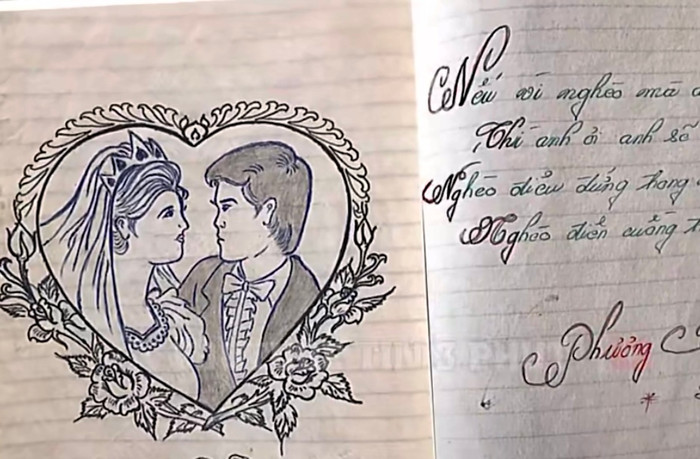 Nếu vì nghèo mà
Thì anh ơi anh số
Nghèo điều đứng
Nghèo điên cuồng
Phưởng